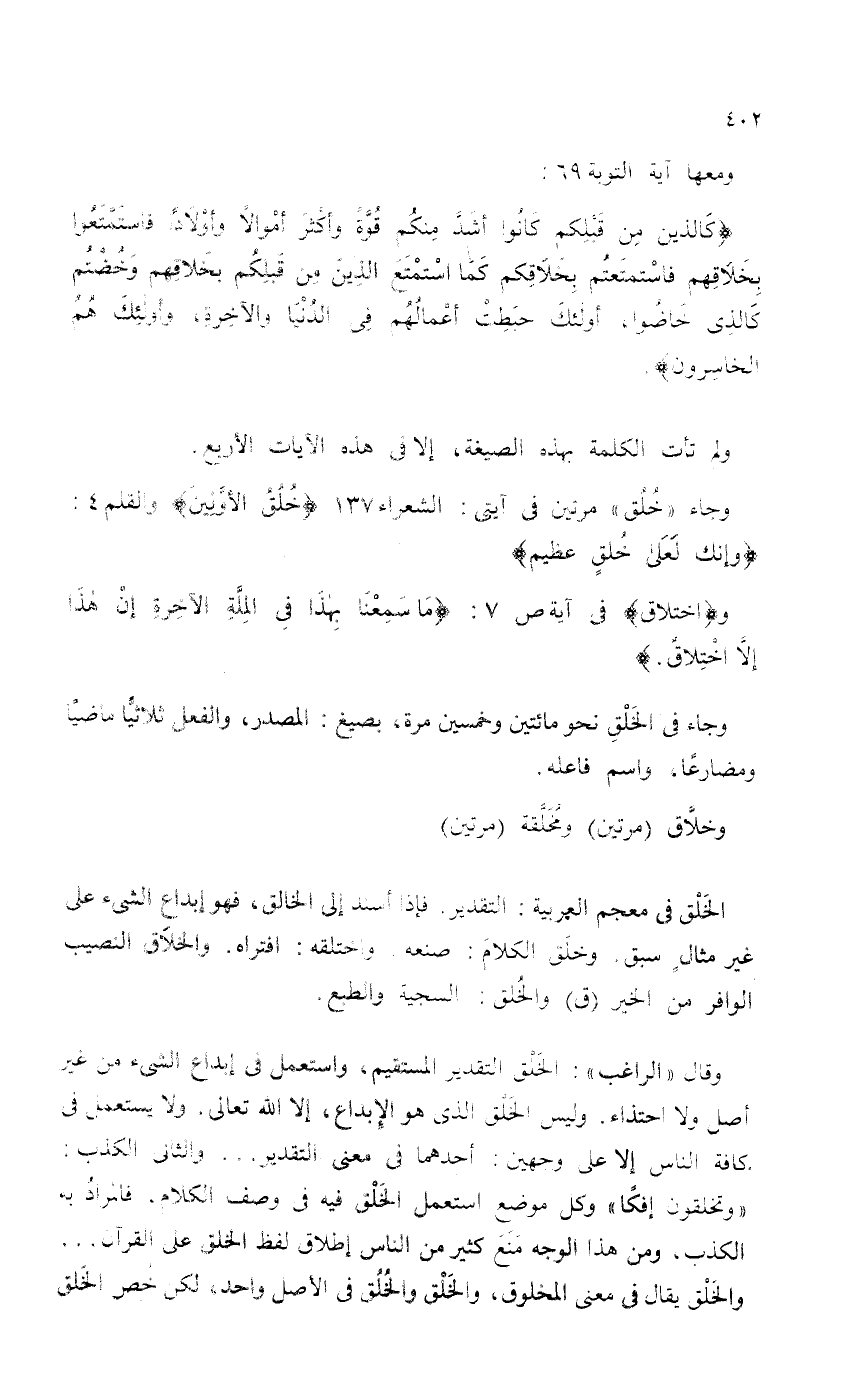 ٤٠٢
ومعها آية التوبة ٦٩ :
﴿كَالذين مِن قَبْلِكم كَانُوا أشَدَّ مِنكُم قُوَّةً وأكْثَرَ أمْوالاً وأوْلَادًا فاستَمْتَعُوا
بِخَلَاقِهم فاسْتمتَعتُم بِخَلَاقِكم كَمَا اسْتمْتَعَ الذينَ مِن قَبلِكُم بخَلاقِهم وَخُضْتُم
كَالذِى خَاضُوا، أولئكَ حبَطِتْ أعْمالُهُم فِى الدُنْيَا والآخِرةِ، وأولئِكَ هُمُ
الخاسِرون﴾.
ولم تأت الكلمة بهذه الصيغة، إلا فى هذه الآيات الأربع.
وجاء «خُلُق» مرتين فى آيتى : الشعراء ١٣٧ ﴿خُلُقُ الأوَّلِينَ﴾ والقلم ٤ :
﴿وإنك لَعَلىٰ خُلقٍ عظيم﴾
و﴿اختلاق﴾ فى آية ص ٧ : ﴿مَا سَمِعْنَا بِهٰذَا فى المِلَّةِ الآخِرةِ إنْ هٰذَا
إلَّا اخْتِلاقٌ.﴾
وجاء فى الخَلْقِ نحو مائتين وخمسين مرة، بصيغ : المصدر، والفعل ثلاثيًّا ماضيًا
ومضارعًا، واسم فاعله.
وخلَّاق (مرتين) ومُخَلَّقة (مرتين)
الخَلْق فى معجم العربية : التقدير. فإذا أسند إلى الخالق، فهو إبداع الشىء على
غير مثالٍ سبق. وخلَق الكلامَ : صنعه. واختلقه : افتراه. والخلَاق النصيب
الوافر من الخير (ق) والخُلق : السجية والطبع.
وقال «الراغب» : الخَلْق التقدير المستقيم، واستعمل فى إبداع الشىء من غير
أصل ولا احتذاء. وليس الخَلْق الذى هو الإبداع، إلا الله تعالى. ولا يستعمل فى
كافة الناس إلا على وجهين : أحدهما فى معنى التقدير... والثانى الكذب :
«وتخلقون إفكًا» وكل موضع استعمل الخَلْق فيه فى وصف الكلام. فالمرادُ به
الكذب، ومن هذا الوجه مَنَعَ كثير من الناس إطلاق لفظ الخلق على القرآن...
والخَلْق يقال فى معنى المخلوق، والخَلْق والخُلُق فى الأصل واحد، لكن خُص الخَلق